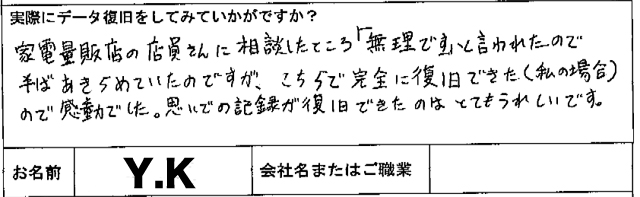 実際にデータ復旧をしてみていかがですか?
家電量販店の店員さんに相談したところ「無理です」と言われたので
半ばあきらめていたのですが、こちらで完全に復旧できた(私の場合)
ので感動でした。思いでの記録が復旧できたのはとてもうれしいです。
お名前 Y.K 会社名またはご職業